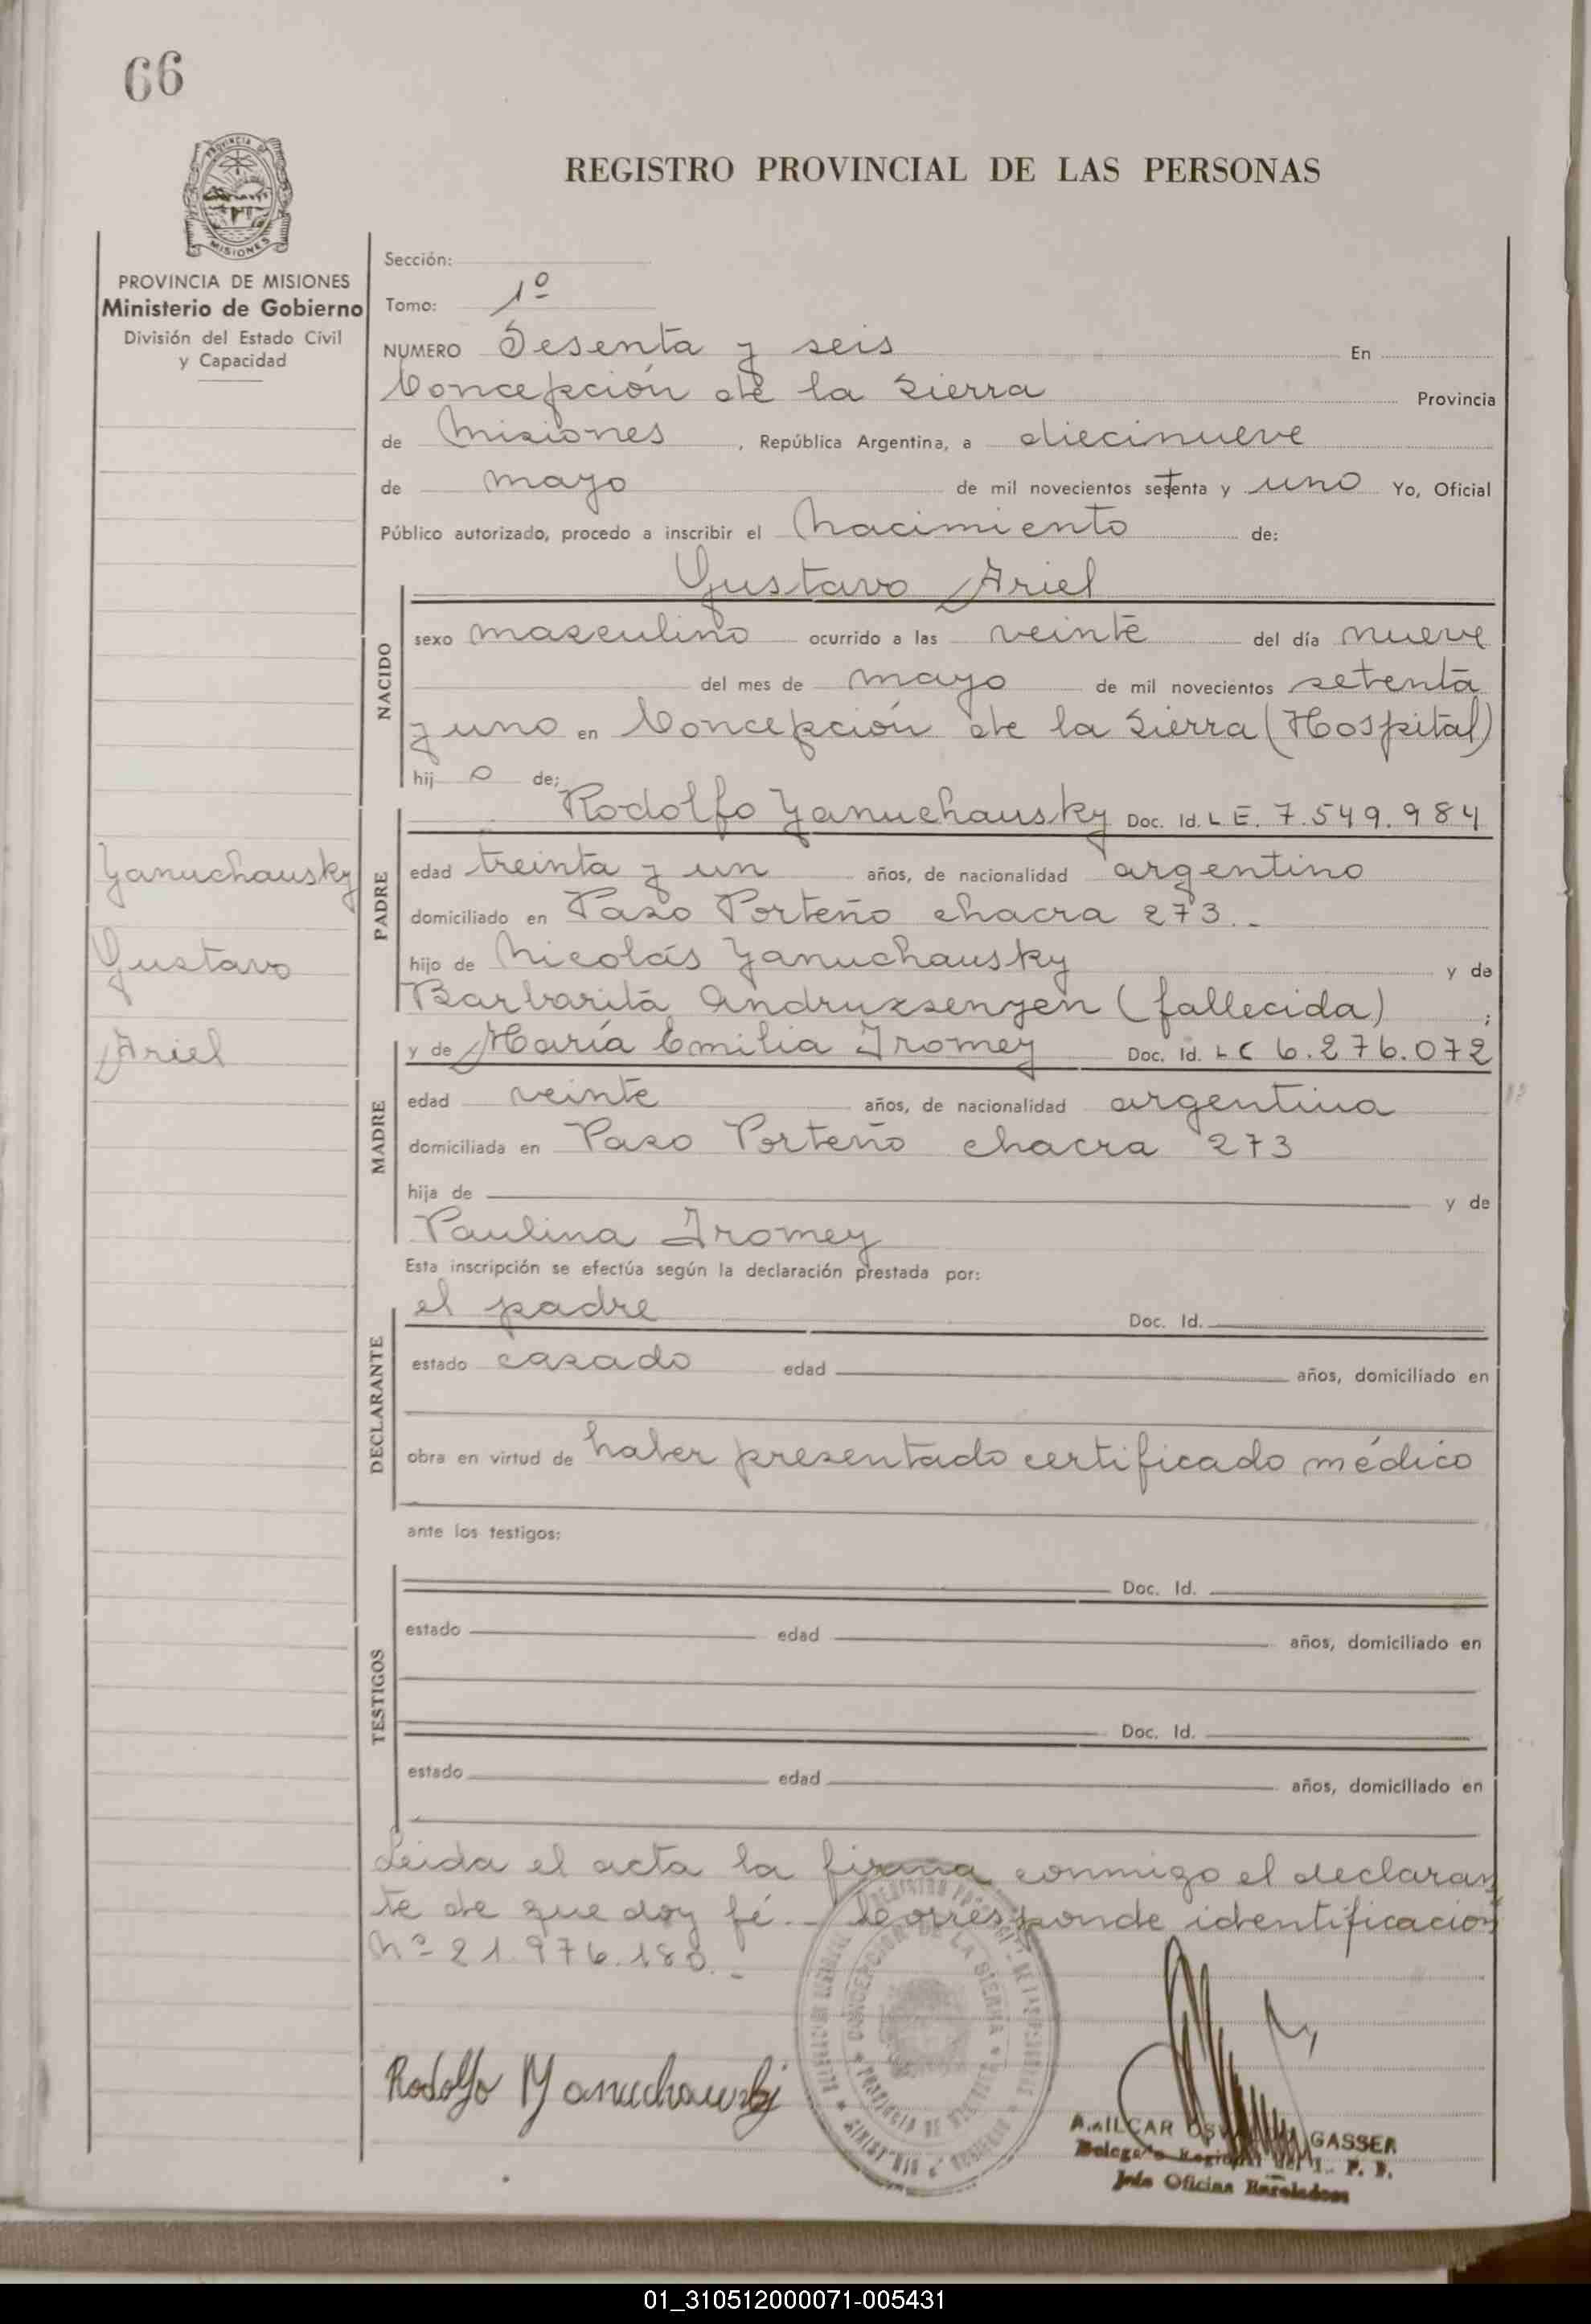 66
PROVINCIA DE MISIONES
Ministerio de Gobierno
División del Estado Civil
y Capacidad
REGISTRO PROVINCIAL DE LAS PERSONAS
Sección:
Tomo: 1º
NUMERO Sesenta y seis En
Concepción de la Sierra Provincia
de Misiones, República Argentina, a diecinueve
de mayo de mil novecientos setenta y uno Yo, Oficial
Público autorizado, procedo a inscribir el Nacimiento de:
Gustavo Ariel
NACIDO
sexo masculino ocurrido a las veinte del día nueve
del mes de mayo de mil novecientos setenta
y uno en Concepción de la Sierra (Hospital)
hij o de;
Rodolfo Yanuchausky Doc. Id. L E. 7.549.984
PADRE
edad treinta y un años, de nacionalidad argentino
domiciliado en Paso Porteño chacra 273.-
hijo de Nicolás Yanuchausky y de
Barbarita Andruxsenyen (fallecida) ;
Yanuchausky
Gustavo
Ariel
y de María Emilia Iromey Doc. Id. L C 6.276.072
MADRE
edad veinte años, de nacionalidad argentina
domiciliada en Paso Porteño chacra 273
hija de y de
Paulina Iromey
Esta inscripción se efectúa según la declaración prestada por:
el padre Doc. Id.
DECLARANTE
estado casado edad años, domiciliado en
obra en virtud de haber presentado certificado médico
ante los testigos:
Doc. Id.
TESTIGOS
estado edad años, domiciliado en
Doc. Id.
estado edad años, domiciliado en
Leida el acta la firma conmigo el declaran
te de que doy fé.- Corresponde identificación
Nº 21.976.180.-
Rodolfo Yanuchausky
CONCEPCION DE LA SIERRA
PROVINCIA DE MISIONES
AMILCAR GASSER
Jefe Oficina
01_310512000071-005431